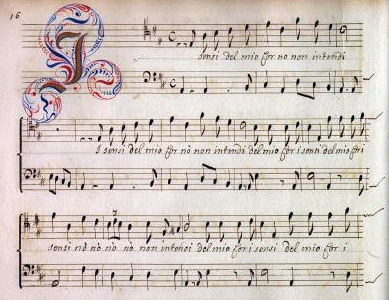 16
I sensi del mio cor no non intendi
I sensi del mio cor no non intendi del mio cor i sensi del mio cor i
sensi no no no no non intendi del mio cor i sensi del mio cor i